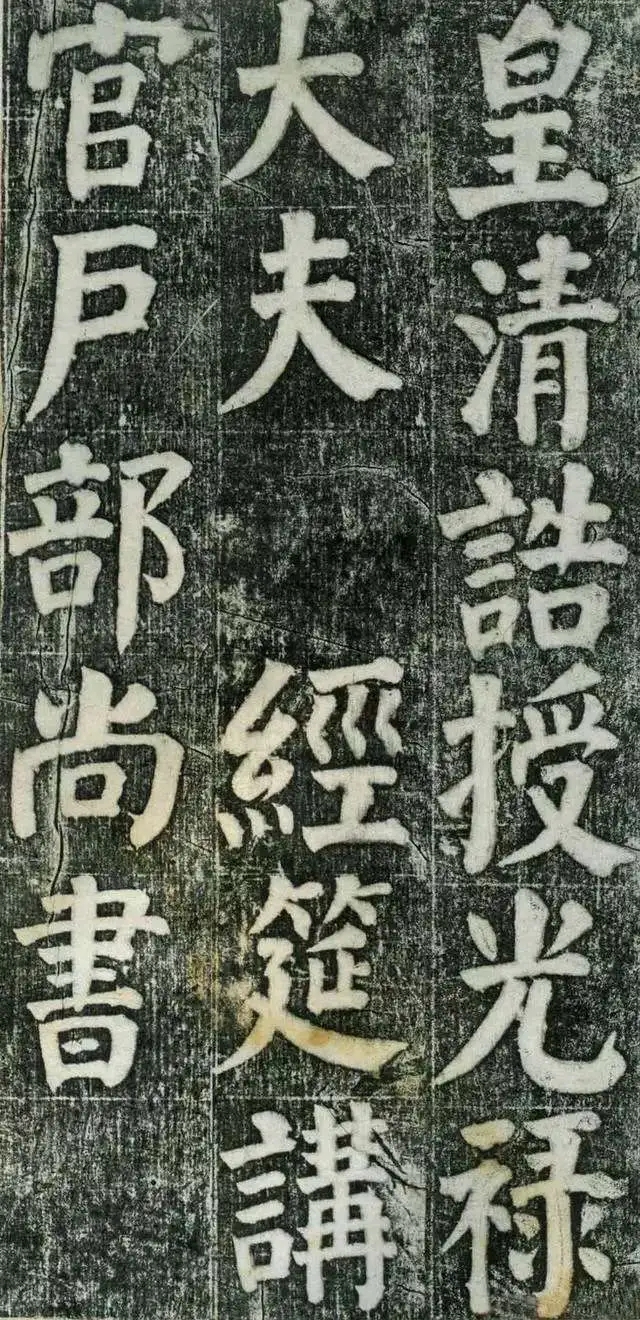 皇清誥授光祿
大夫 經筵講
官戶部尚書